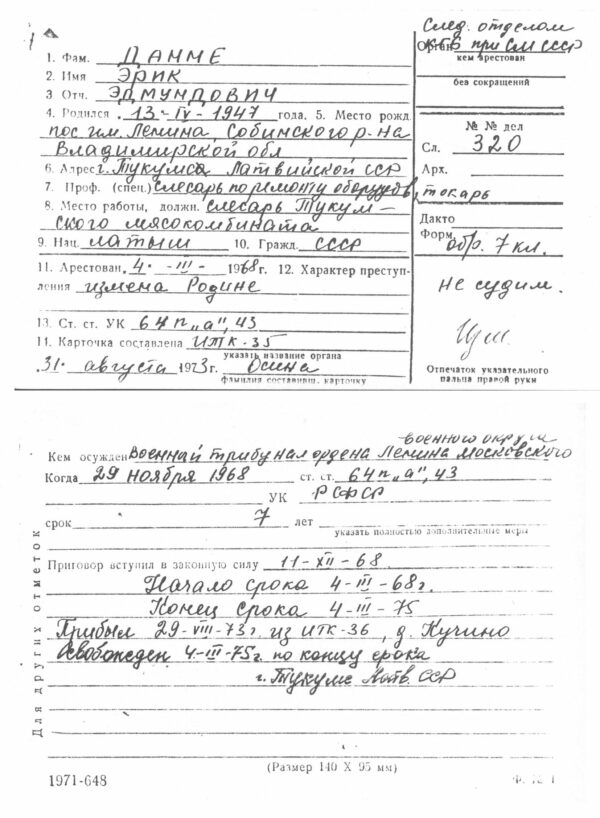 1. Фам. ДАММЕ
2. Имя ЭРИК
3. Отч. ЭДМУНДОВИЧ
4. Родился 13-IV-1947 года. 5. Место рожд.
пос. им. Ленина, Собинского р-на
Владимирской обл
6. Адрес г. Тукумса Латвийской ССР
7. Проф. (спец.) слесарь по ремонту оборудов, токарь
8. Место работы, должн. слесарь Тукум-
ского мясокомбината
9. Нац. латыш 10. Гражд. СССР
11. Арестован 4. -III- 1968 г. 12. Характер преступ-
ления измена Родине
13. Ст. ст. УК 64 п „а", 43
11. Карточка составлена ИТК-35
указать название органа
31. августа 1973 г. Осина
фамилия составивш. карточку
След. отделом
Орган КГБ при СМ СССР
кем арестован
без сокращений
№ № дел
Сл. 320
Арх.
Дакто
Форм.
обр. 7 кл.
не судим.
Отпечаток указательного
пальца правой руки
военного округа
Кем осужден Военный трибунал ордена Ленина Московского
Когда 29 ноября 1968 ст. ст. 64 п „а", 43
УК РСФСР
срок 7 лет
указать полностью дополнительные меры
Приговор вступил в законную силу 11-XII-68.
Начало срока 4-III-68 г.
Конец срока 4-III-75
Прибыл 29-VIII-73 г. из ИТК-36, д. Кучино
Освобожден 4-III-75 г. по концу срока
г. Тукумс Латв. ССР
Для других отметок
(Размер 140 X 95 мм)
1971-648